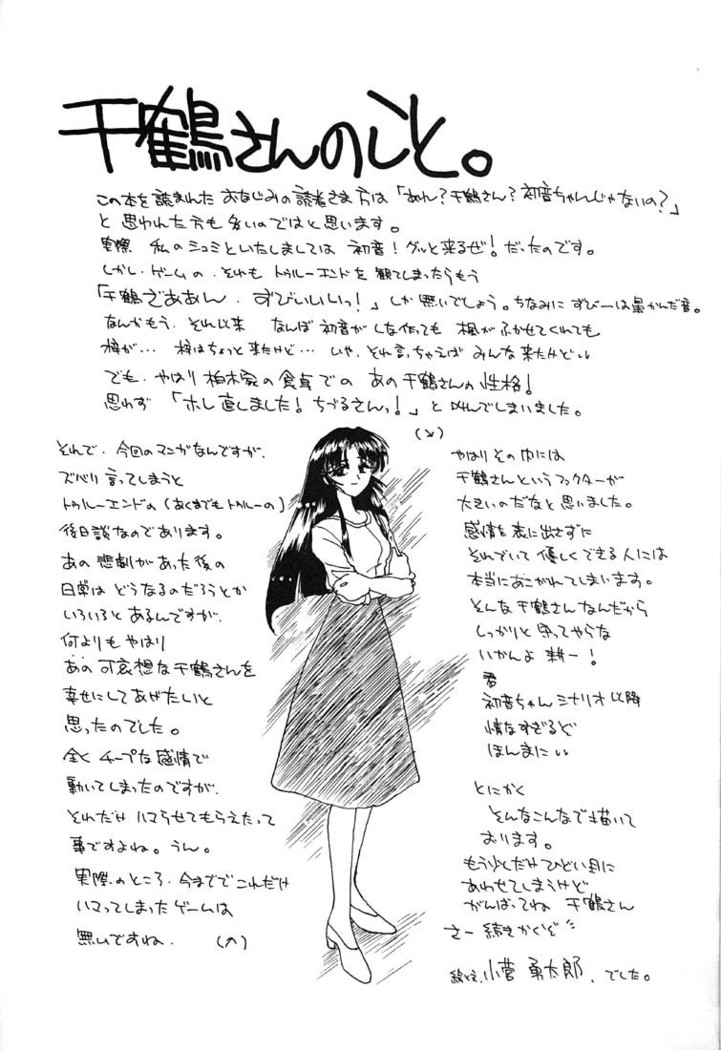 千鶴さんのこと。
この本を読まれた おなじみの読者さま方は「あれ?千鶴さん?初音ちゃんじゃないの?」
と 思われた方も多いのではと思います。
実際 私のシュミといたしましては 初音!グッと来るぜ!だったのです。
しかし、ゲームの、それも トゥルーエンドを観てしまったらもう
「千鶴ざああん、ずびいいいっ!」しか無いでしょう。ちなみに ずびーは鼻かんだ音。
なんかもう、それ以来 なんぼ 初音が しな作っても 楓がふかせてくれても
梓が… 梓はちょっと来たけど… いや、それ言っちゃえば みんな来たけどい
でも、やはり 柏木家の食卓での あの千鶴さんの性格!
思わず「ホレ直しました!ちづるさんっ!」と叫んでしまいました。
それで、今回のマンガなんですが、
ズバリ言ってしまうと
トゥルーエンドの(あくまでもトゥルーの)
後日談なのであります。
あの悲劇があった後の
日常は どうなるのだろうとか
いろいろとあるんですが、
何よりも やはり
あの可哀想な千鶴さんを
幸せにしてあげたいと
思ったのでした。
全く チープな感情で
動いてしまったのですが、
それだけ ハマらせてもらえたって
事ですよね。うん。
実際のところ、今まででこれだけ
ハマってしまったゲームは
無いですね。
やはり その中には
千鶴さんというファクターが
大きいのだなと思いました。
感情を表に出さずに
それでいて 優しくできる人には
本当にあこがれてしまいます。
そんな千鶴さんなんだから
しっかりと 守ってやらな
いかんよ 耕一!
君
初音ちゃんシナリオ以降
情なすぎるど
ほんまにい
とにかく
そんなこんなで描いて
おります。
もう少しだけひどい目に
あわせてしまうけど
がんばってね 千鶴さん
さー 続きかくぞ
絵と文、小菅 勇太郎、でした。